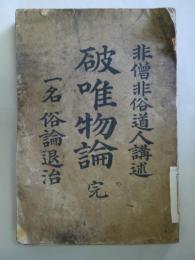 非僧非俗道人講述
破唯物論 完
一名 俗論退治